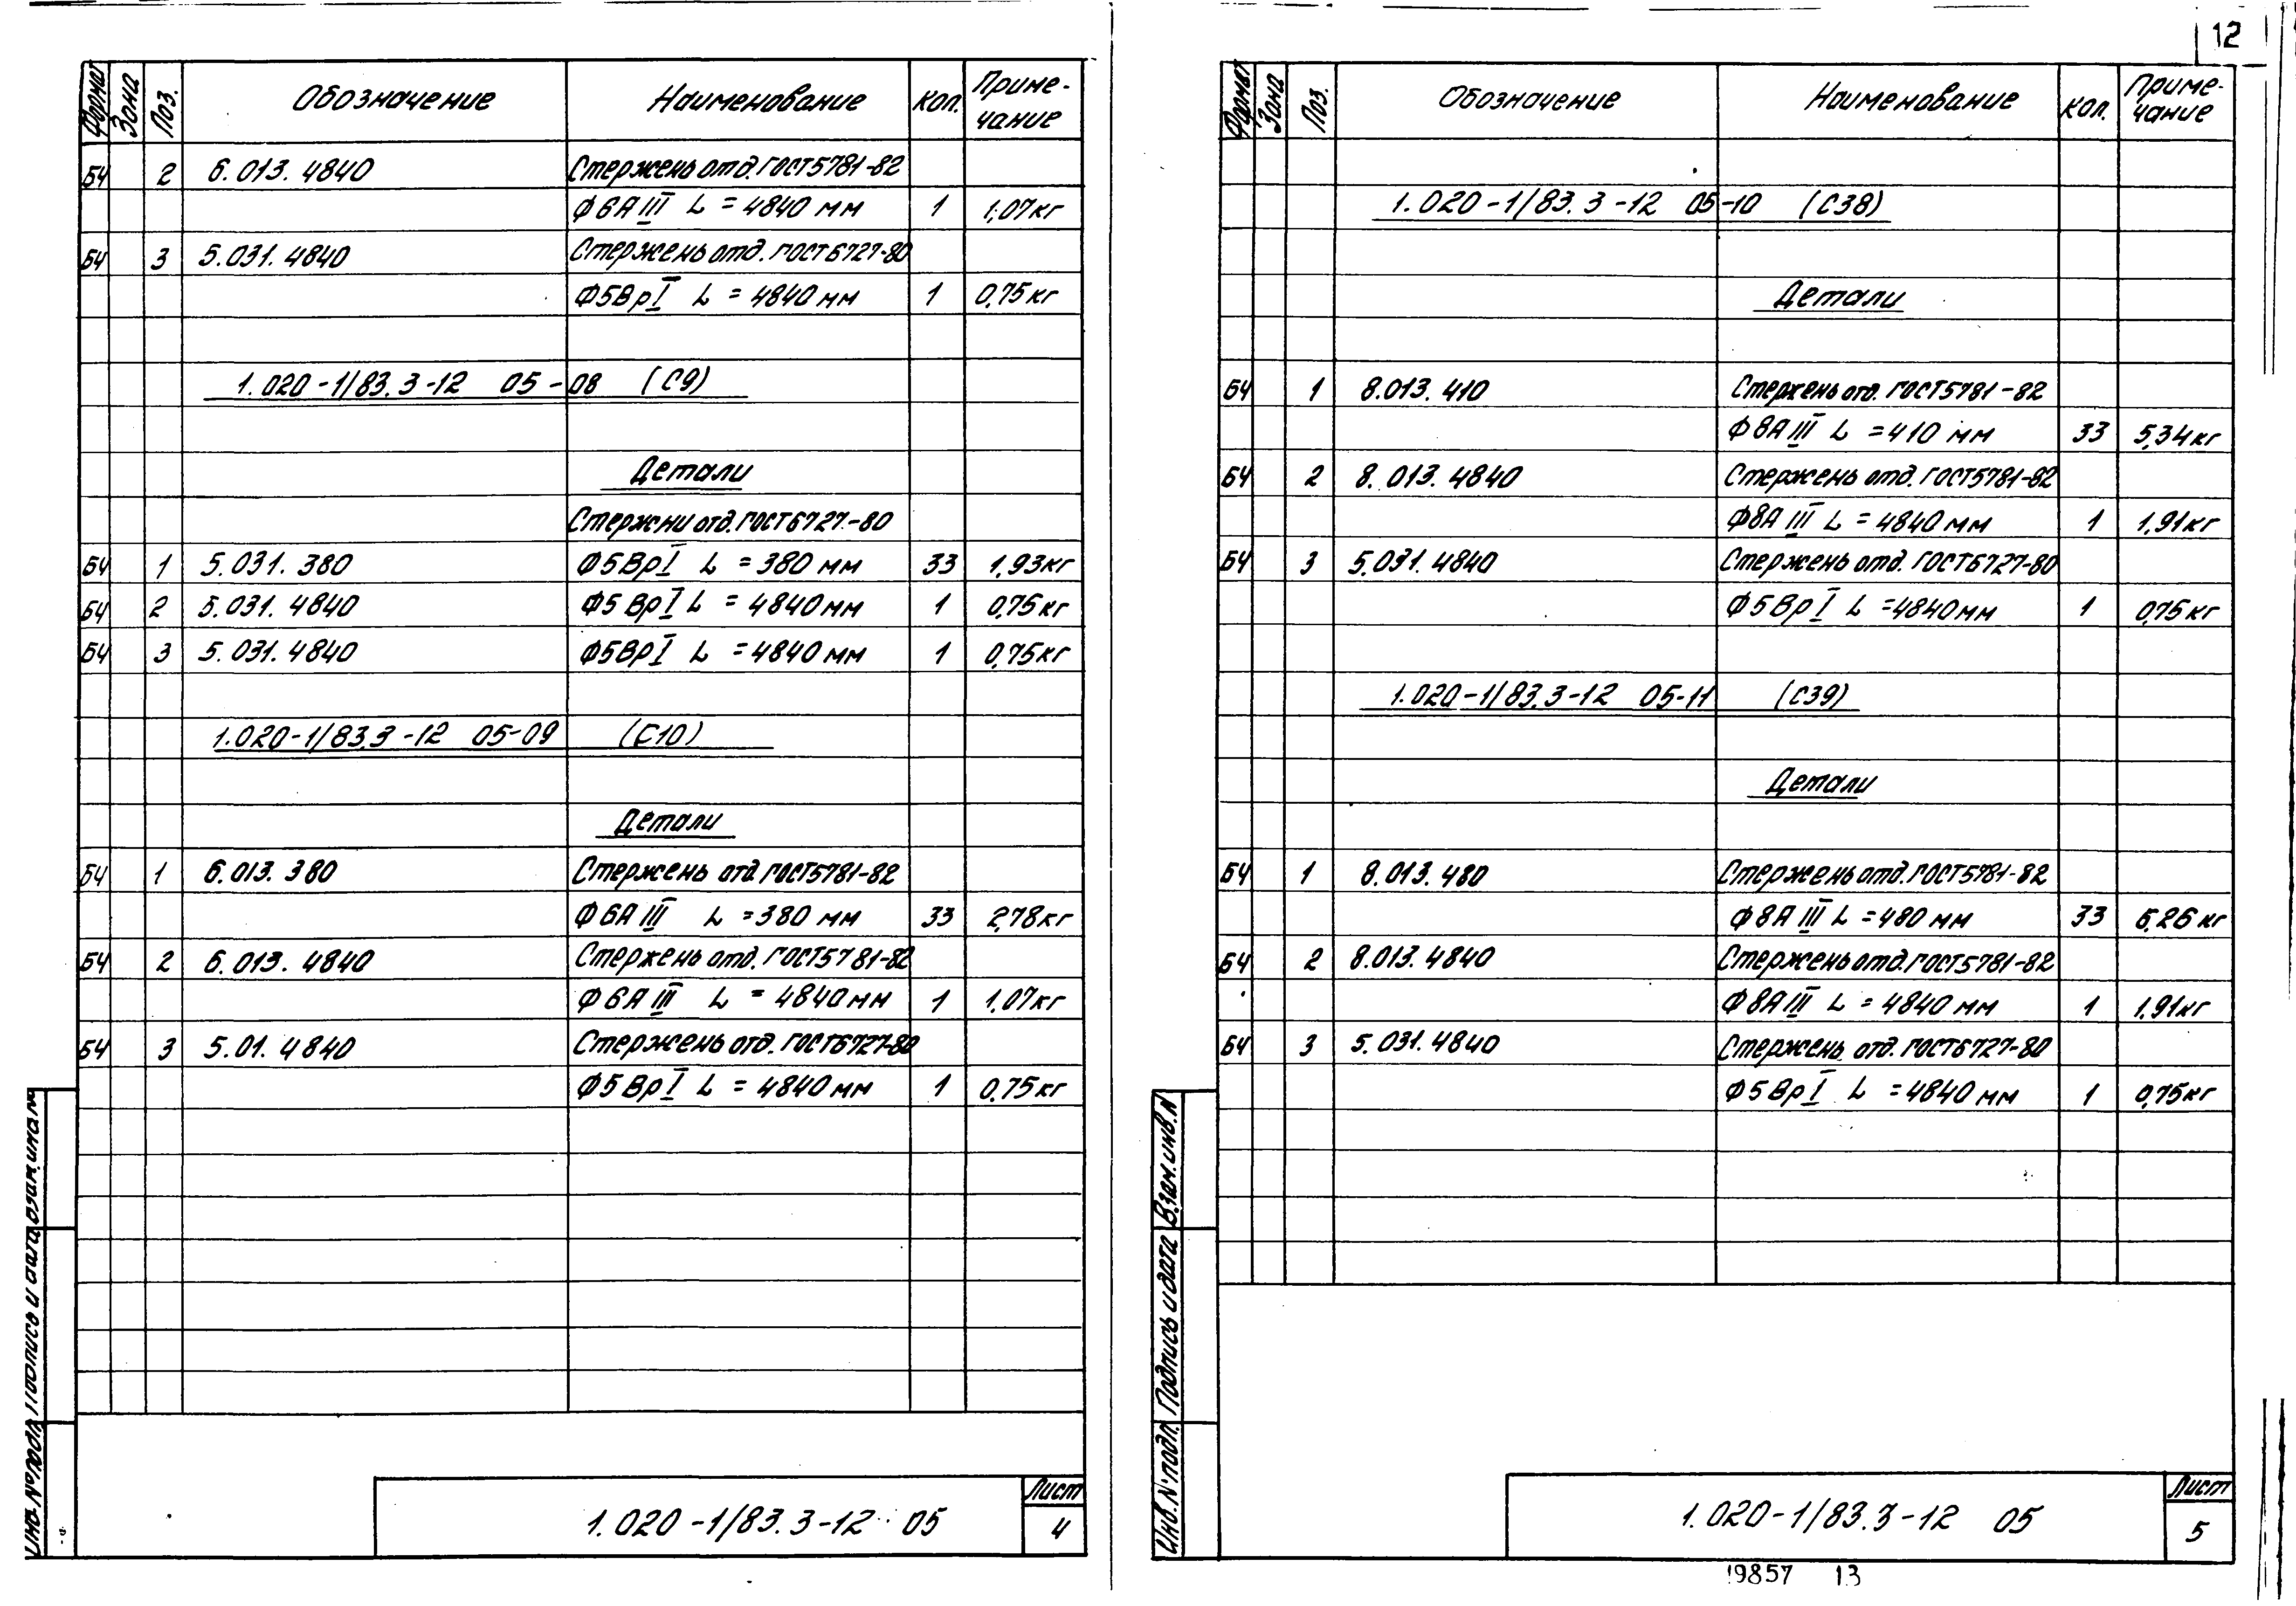 12
Формат Зона Поз. Обозначение Наименование Кол. Приме-
чание
БЧ 2 6.013.4840 Стержень отд. ГОСТ 5781-82
Ф6АIII L = 4840 мм 1 1,07кг
БЧ 3 5.031.4840 Стержень отд. ГОСТ 6727-80
Ф5ВрI L = 4840 мм 1 0,75 кг
1.020-1/83.3-12 05-08 (С9)
Детали
Стержни отд. ГОСТ 6727-80
БЧ 1 5.031.380 Ф5ВрI L = 380 мм 33 1,93кг
БЧ 2 5.031.4840 Ф5ВрI L = 4840 мм 1 0,75 кг
БЧ 3 5.031.4840 Ф5ВрI L = 4840 мм 1 0,75кг
1.020-1/83.3-12 05-09 (С10)
Детали
БЧ 1 6.013.380 Стержень отд ГОСТ 5781-82
Ф6АIII L = 380 мм 33 2,78кг
БЧ 2 6.013.4840 Стержень отд. ГОСТ 5781-82
Ф6АIII L = 4840 мм 1 1,07кг
БЧ 3 5.01.4840 Стержень отд. ГОСТ 6727-80
Ф5ВрI L = 4840 мм 1 0,75кг
Инв. № подл. Подпись и дата Взам. инв. №
1.020-1/83.3-12 05
Лист
4
Формат Зона Поз. Обозначение Наименование Кол. Приме-
чание
1.020-1/83.3-12 05-10 (С38)
Детали
БЧ 1 8.013.410 Стержень отд. ГОСТ 5781-82
Ф8АIII L = 410 мм 33 5,34кг
БЧ 2 8.013.4840 Стержень отд. ГОСТ 5781-82
Ф8АIII L = 4840 мм 1 1,91кг
БЧ 3 5.031.4840 Стержень отд. ГОСТ 6727-80
Ф5ВрI L = 4840 мм 1 0,75кг
1.020-1/83.3-12 05-11 (С39)
Детали
БЧ 1 8.013.480 Стержень отд. ГОСТ 5781-82
Ф8АIII L = 480 мм 33 6,26 кг
БЧ 2 8.013.4840 Стержень отд. ГОСТ 5781-82
Ф8АIII L = 4840 мм 1 1,91кг
БЧ 3 5.031.4840 Стержень отд. ГОСТ 6727-80
Ф5ВрI L = 4840 мм 1 0,75кг
Инв. № подл. Подпись и дата Взам. инв. №
1.020-1/83.3-12 05
Лист
5
19857 13